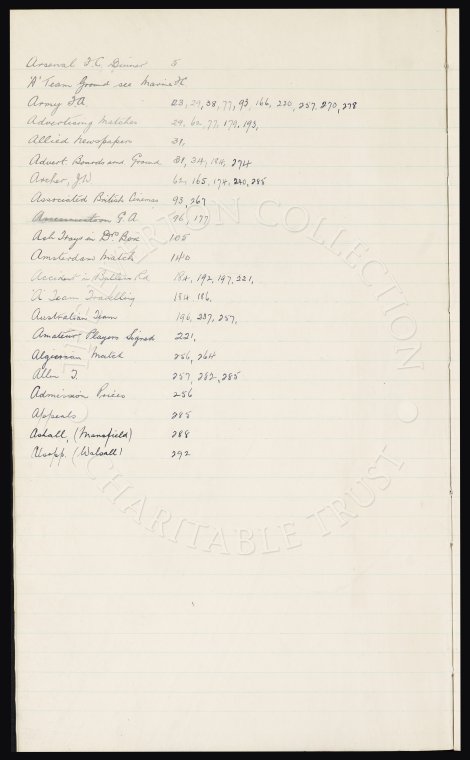 Arsenal F.C. Dinner 5
'A' Team Ground see Marine F.C.
Army F.A. 23, 29, 38, 77, 93, 166, 220, 257, 270, 278
Advertising Matches 29, 62, 77, 179, 193,
Allied Newspapers 31,
Advert Boards and Ground 31, 34, 184, 274
Archer, J.W 62, 165, 174, 240, 285
Associated British Cinemas 93, 267
G.A. 96, 177
Ash Trays in Drs Box 105
Amsterdam Match 140
Accident in Bullens Rd 184, 192, 197, 221,
'A' Team Travelling 184, 186,
Australian Team 196, 237, 257,
Amateur Players Signed 221,
Algerian Match 256, 264
Allen T. 257, 282, 285
Admission Prices 286
Appeals 288
Ashall, (Mansfield) 288
Alsopp. (Walsall) 292
EVERTON COLLECTION
CHARITABLE TRUST